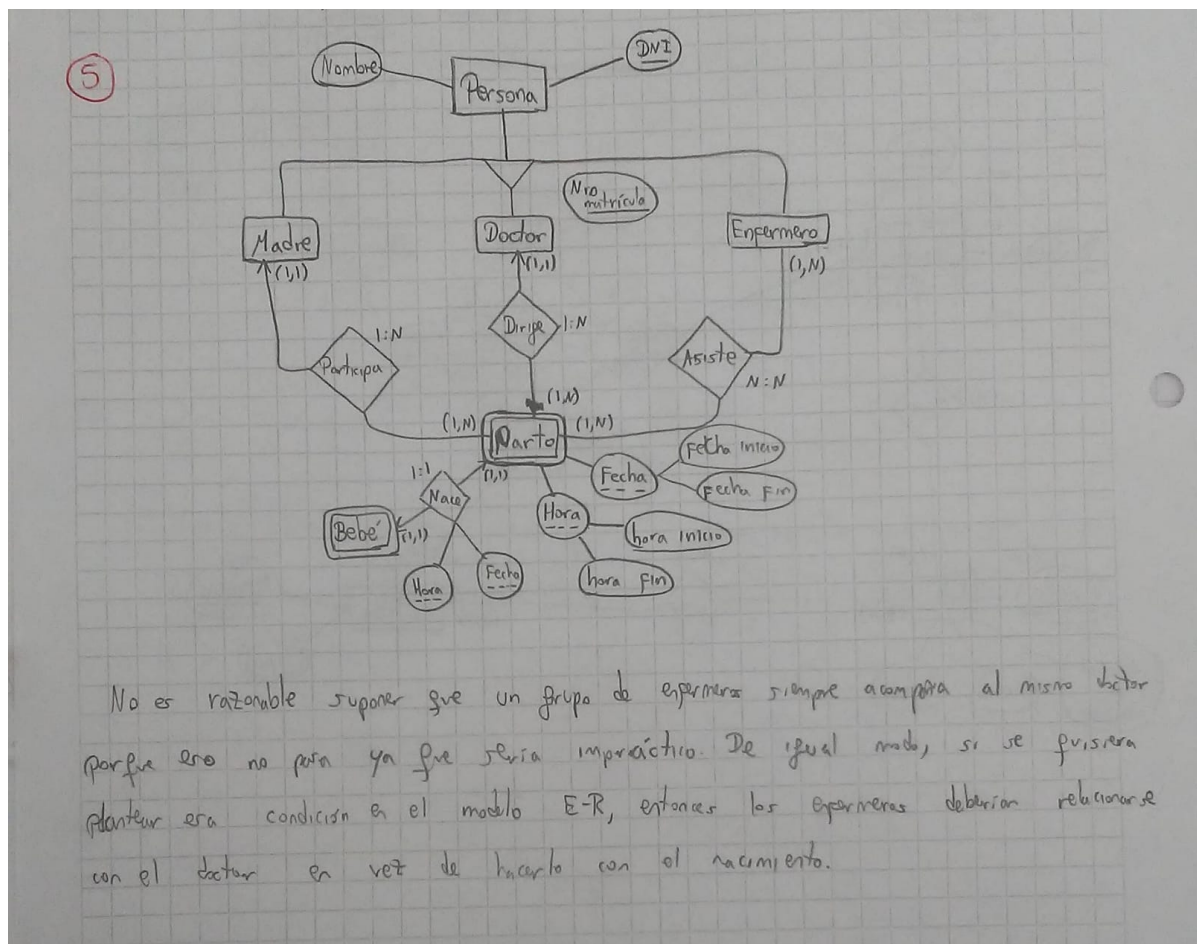 5
Nombre
DNI
Persona
Nro matrícula
Madre
Doctor
Enfermero
(1,1)
(1,1)
(1,N)
1:N
Participa
Dirige
1:N
Asiste
N:N
(1,N)
(1,N)
(1,N)
Parto
Fecha
Fecha inicio
Fecha Fin
1:1
(1,1)
Nace
Hora
hora inicio
Bebé
(1,1)
Hora
Fecha
hora Fin
No es razonable suponer que un grupo de enfermeros siempre acompaña al mismo doctor
porque eso no pasa ya que sería impráctico. De igual modo, si se quisiera
plantear esa condición en el modelo E-R, entonces los enfermeros deberían relacionarse
con el doctor en vez de hacerlo con el nacimiento.